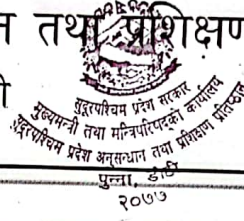 न तथा प्रशिक्षण
ी
सुदूरपश्चिम प्रदेश सरकार
मुख्यमन्त्री तथा मन्त्रिपरिषद्को कार्यालय
सुदूरपश्चिम प्रदेश अनुसन्धान तथा प्रशिक्षण प्रतिष्ठान
पुन्ना, डोटी
२०७७